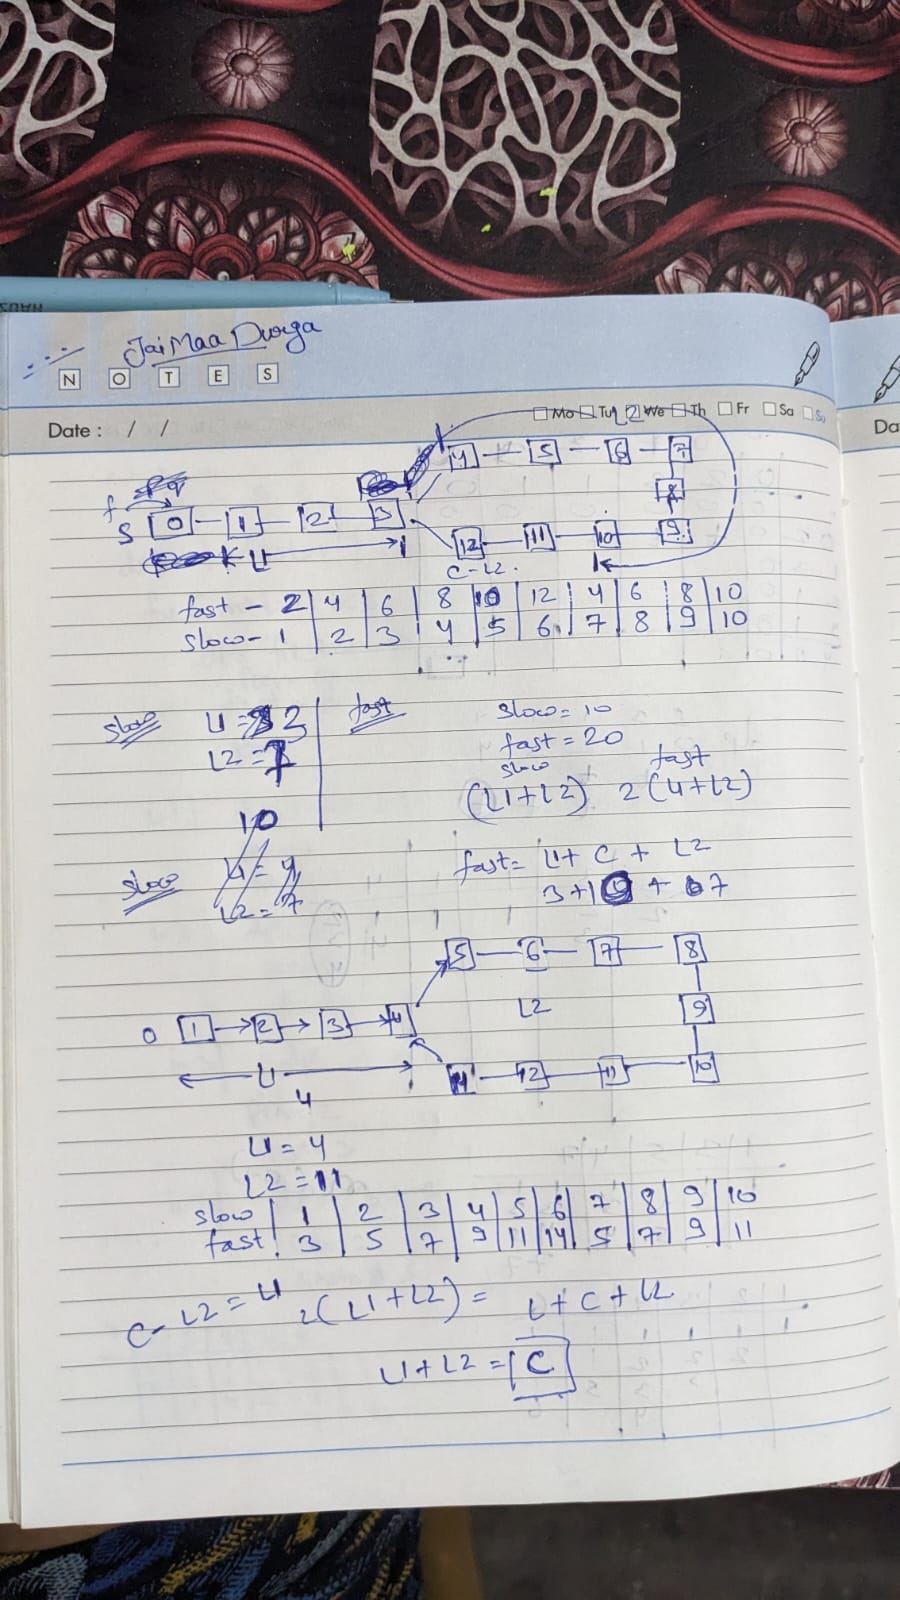 Jai Maa Durga
N O T E S
Date : / /
Mo Tu We Th Fr Sa Su
L2
4 5 6 7
f
S 0 1 2 3
8
12 11 10 9
L1
C-L2.
fast - 2 4 6 8 10 12 4 6 8 10
slow - 1 2 3 4 5 6 7 8 9 10
slow L1 = 3 fast slow = 10
L2 = 7 fast = 20
slow fast
10 (L1+L2) 2(L1+L2)
slow L1 = 4 fast = L1 + C + L2
L2 = 7 3+10+7
5 6 7 8
L2 9
0 1 2 3 4
L1 12 11 10
4
L1 = 4
L2 = 11
slow 1 2 3 4 5 6 7 8 9 10
fast 3 5 7 9 11 14 5 7 9 11
C-L2 = L1 2(L1+L2) = L+C+L2
L1+L2 = C